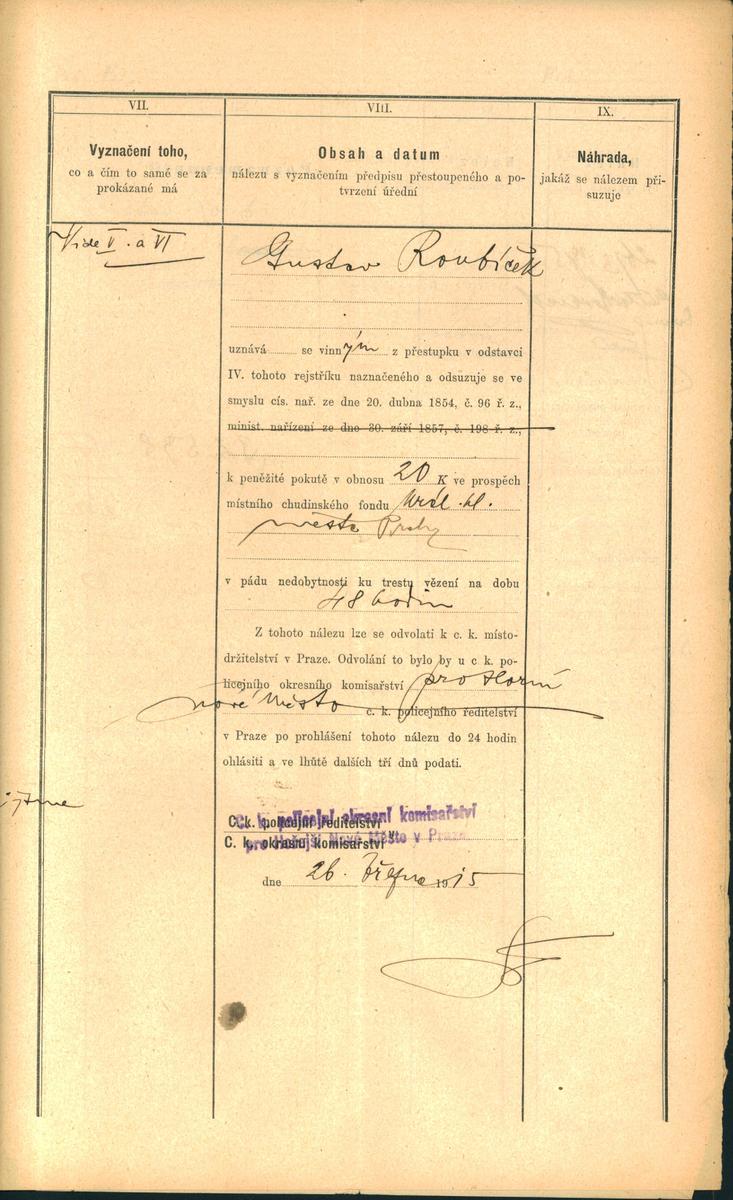 VII.
Vyznačení toho,
co a čím to samé se za
prokázané má
VIII.
Obsah a datum
nálezu s vyznačením předpisu přestoupeného a po-
tvrzení úřední
IX.
Náhrada,
jakáž se nálezem při-
suzuje
Vide V. a VI
Gustav Roubíček
uznává se vinným z přestupku v odstavci
IV. tohoto rejstříku naznačeného a odsuzuje se ve
smyslu cís. nař. ze dne 20. dubna 1854, č. 96 ř. z.,
minist. nařízení ze dne 30. září 1857, č. 198 ř. z.,
k peněžité pokutě v obnosu 20 K ve prospěch
místního chudinského fondu král. hl.
města Prahy
v pádu nedobytnosti ku trestu vězení na dobu
48 hodin
Z tohoto nálezu lze se odvolati k c. k. místo-
držitelství v Praze. Odvolání to bylo by u c k. po-
licejního okresního komisařství pro Horní
nové Město c. k. policejního ředitelství
v Praze po prohlášení tohoto nálezu do 24 hodin
ohlásiti a ve lhůtě dalších tří dnů podati.
C. k. policejní okresní komisařství
C. k. policejní ředitelství
pro Hořejší Nové Město v Praze
C. k. okresní komisařství
dne 26. března 1915